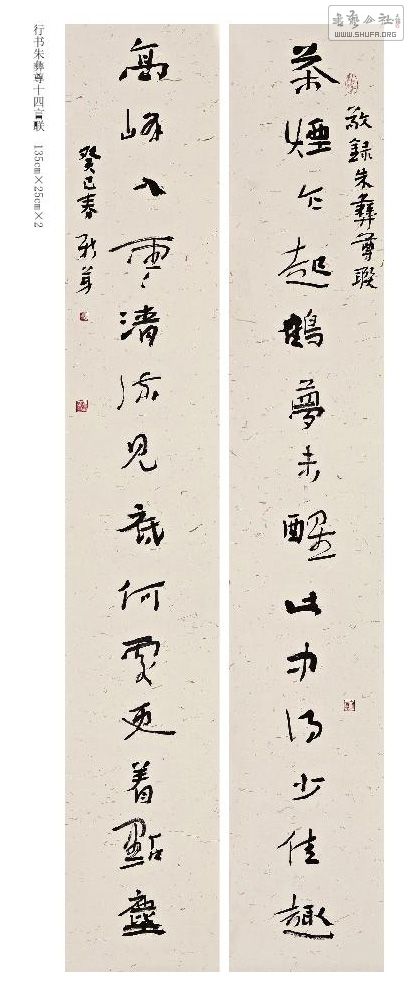 书艺公社
WWW.SHUFA.ORG
行书朱彝尊十四言联 135cm×25cm×2
敬録朱彝尊聯
茶煙乍起鶴夢未醒此中得少佳趣
高峰入雲清流見底何處更着點塵
癸巳春